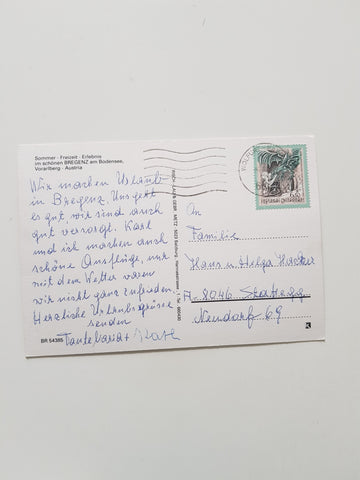 Sommer · Freizeit · Erlebnis
im schönen BREGENZ am Bodensee,
Vorarlberg · Austria
Wir machen Urlaub
in Bregenz. Uns geht
es gut, wir sind auch
gut versorgt. Karl
und ich machen auch
schöne Ausflüge, nur
mit dem Wetter waren
wir nicht ganz zufrieden
Herzliche Urlaubsgrüsse
senden
Tante Maria + Karl
BR 54385
REPUBLIK ÖSTERREICH
An
Familie
Hans u. Helga
A-8046 Stattegg
Neudorf 69